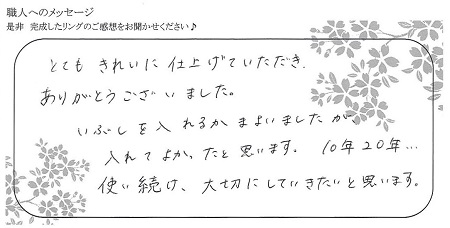 職人へのメッセージ
是非 完成したリングのご感想をお聞かせください♪
とても きれいに 仕上げていただき
ありがとうございました。
いぶしを入れるか まよいましたが、
入れてよかったと思います。 10年20年…
使い続け、大切にしていきたいと思います。